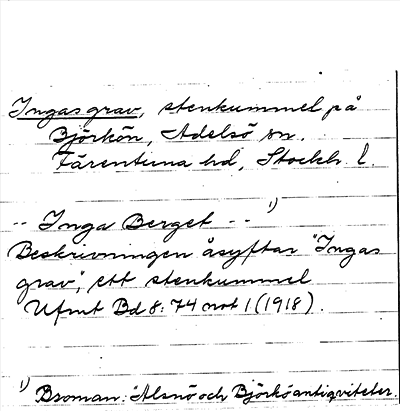 Ingas grav, stenkummel på
Björkön, Adelsö sn.
Färentuna hd, Stockh. l.
-- Inga Berget -- 1)
Beskrivningen åsyftar "Ingas
grav", ett stenkummel
Ufmt Bd 8: 74 not 1 (1918).
1) Broman: Alsnö och Björkö antiqviteter.